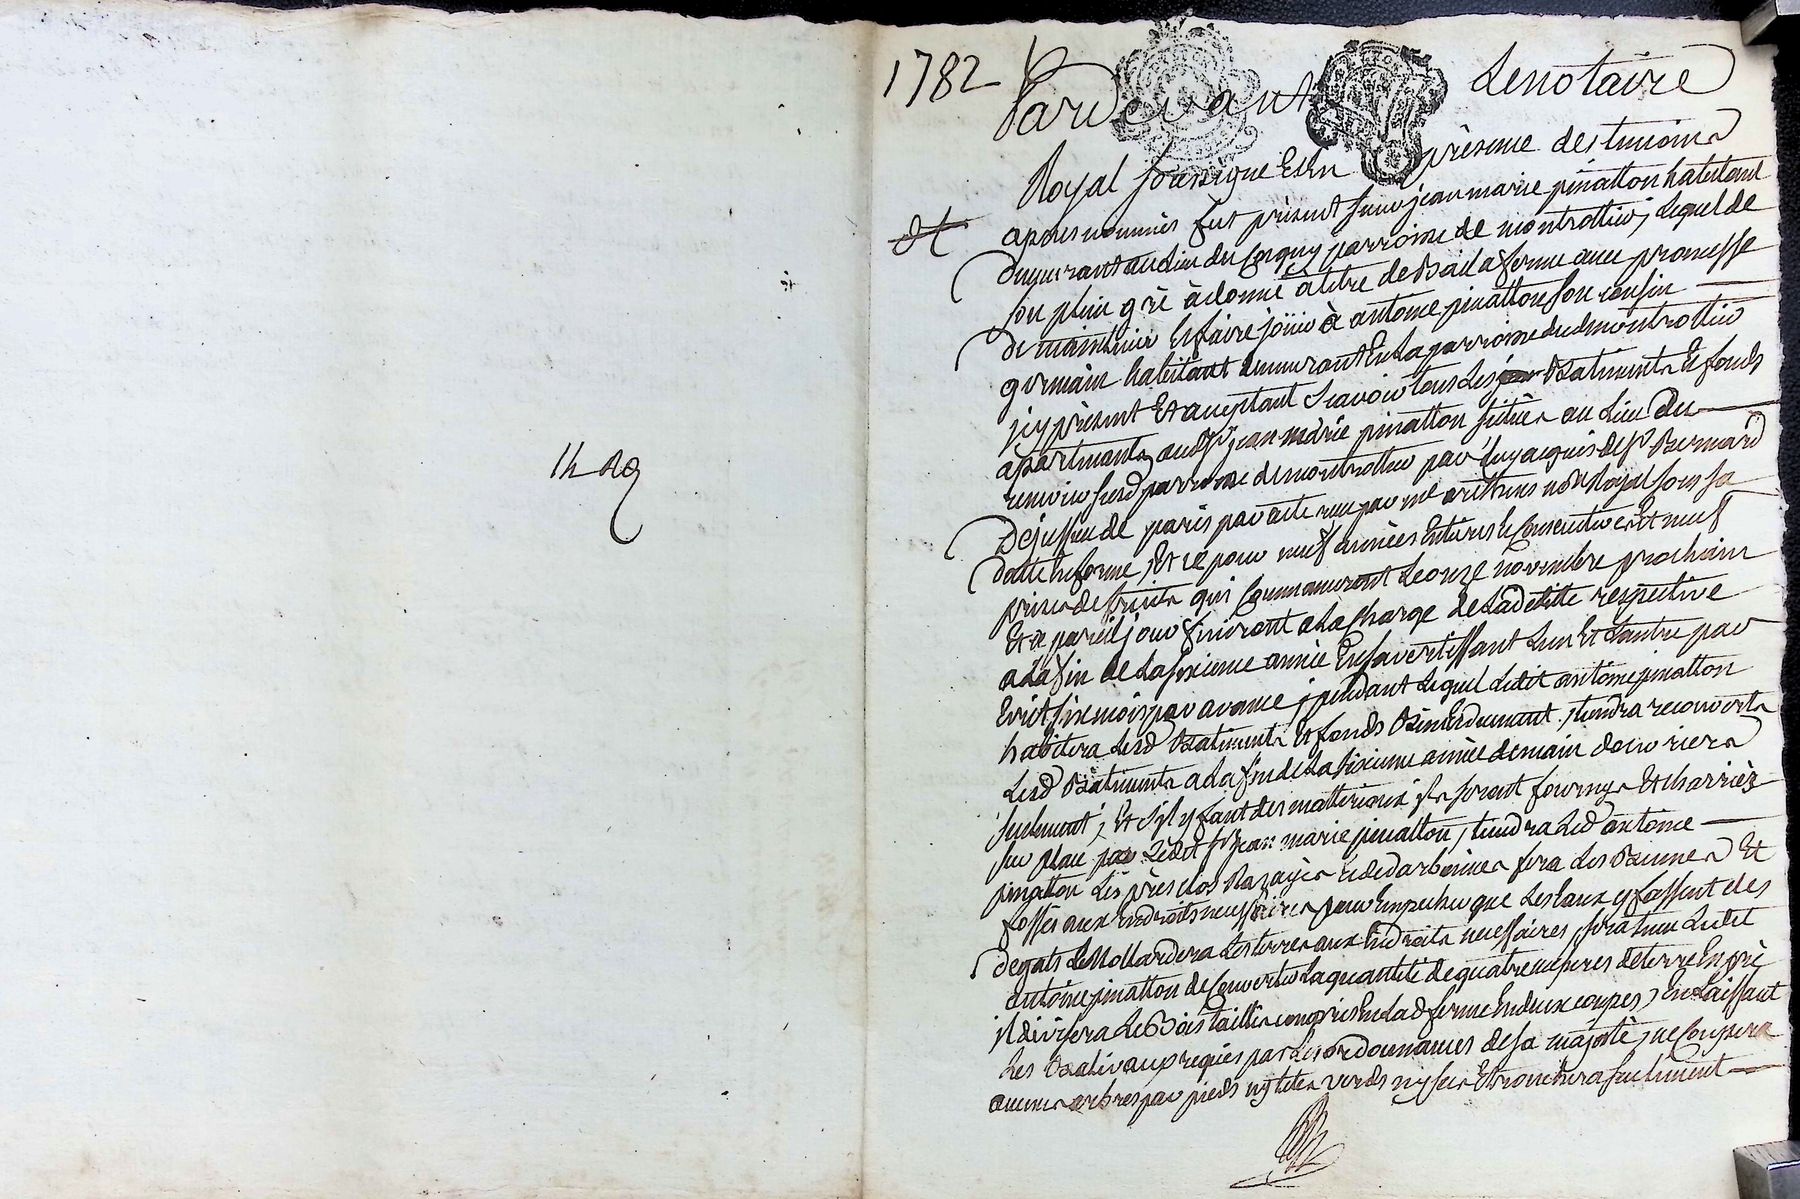 1782
Pardevant Le notaire
Royal soussigne Et En présence des temoins
apres nommés fut présent sieur jean marie pinatton habitant
demeurant au lieu du parroisse de montrottier, Lequel de
son plein gré à donné à titre de Bail a ferme avec promesse
de maintenir Et faire joüir à antoine pinatton son cousin
germain habitant demeurant En La parroisse dud montrottier
jcy présent Et acceptant Scavoir tous Les Batiments Et fonds
apartenants aud Sr jean marie pinatton situés au Lieu du
susd parroisse de montrottier par luy acquis de Sr Bernard
Dejussieu de paris par acte reçu par me notre Royal sous sa
datte En forme, Et ce pour neuf années Entieres Et Consecutives Et neuf
prises de fruits qui Commanceront Le onze novembre prochain
Et a pareil jour finiront a La Charge de La deditte respective
a La fin de La sixieme année En s'avertissant L'un Et L'autre par
Ecrit six mois par avance, pendant Lequel Ledit antoine pinatton
habitera Lesd Batiments Et fonds Bien Et dument, tiendra recouverts
Lesd Batiments a La fin de La sixieme année de main d'ouvriers
seulement, Et s'jl y faut des matteriaux jls seront fournys Et charriés
sur place par Ledit Sr Jean marie pinatton, tiendra Led antoine
pinatton Les près clos Razayés Et dedarbonnés fera Les Baumes Et
fossés aux Endroits necessaires pour Empecher que Les Eaux y fassent des
degats Et Mollardera Les terres aux Endroits necessaires, sera tenu Ledit
antoine pinatton de Convertir La quantité de quatre meperes de terre En pré
jl divisera Le Bois taillis compris En Lad ferme En deux coupes, En Laissant
Les Balivaux requis par Les ordonnances de sa majesté, ne Coupera
aucuns arbres par pieds ny tetes verds ny secs Et tronchera seulement